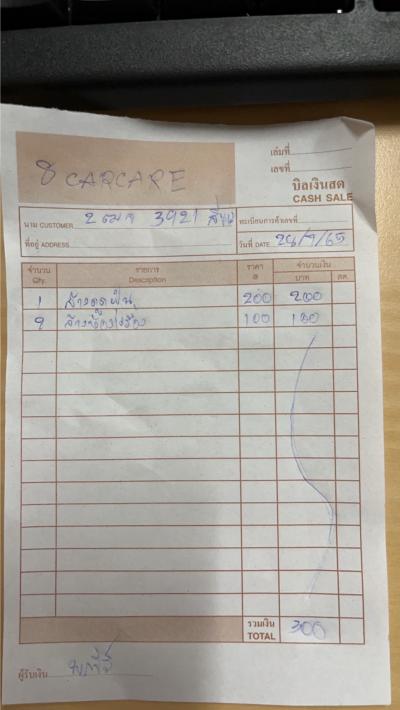 8 CARCARE
เล่มที่
เลขที่
บิลเงินสด
CASH SALE
นาม CUSTOMER 2 ฒต 3921 ทะเบียนการค้าเลขที่
ที่อยู่ ADDRESS วันที่ DATE 28/9/65
จำนวน รายการ ราคา จำนวนเงิน
Qty. Description @ บาท สต.
1 ล้างดูดฝุ่น 200 200
ล้างห้องเครื่อง 100 100
รวมเงิน
TOTAL 300
ผู้รับเงิน